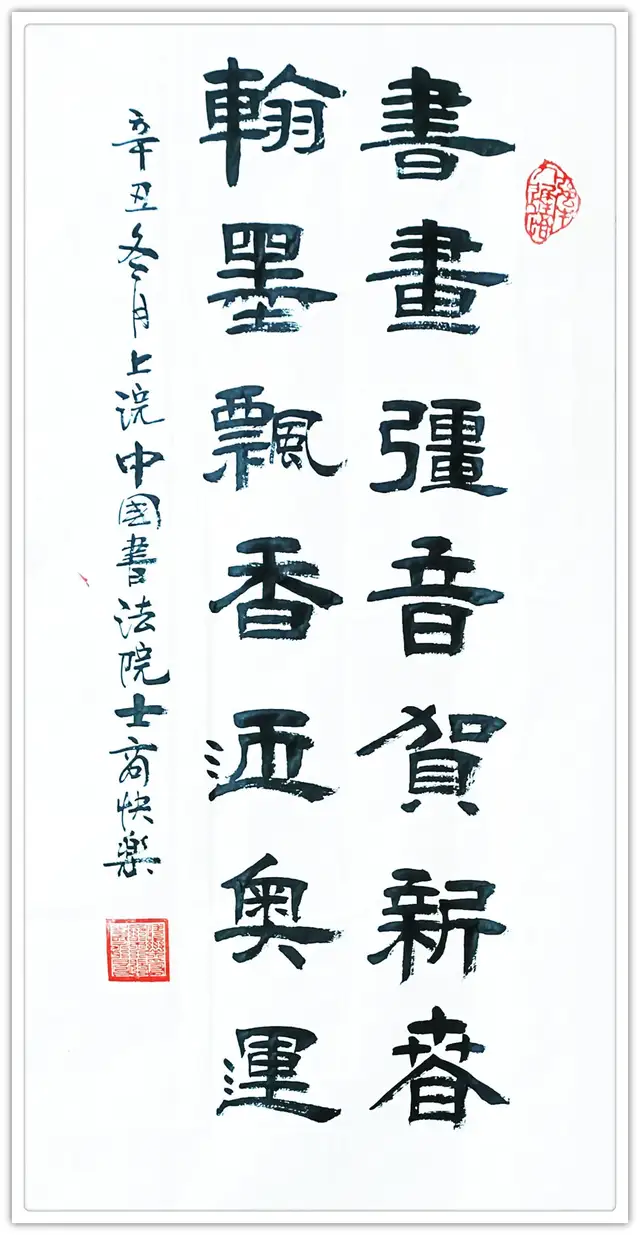 書畫彊音賀新春
翰墨飄香迎奧運
辛丑冬月上浣中国書法院士商快樂